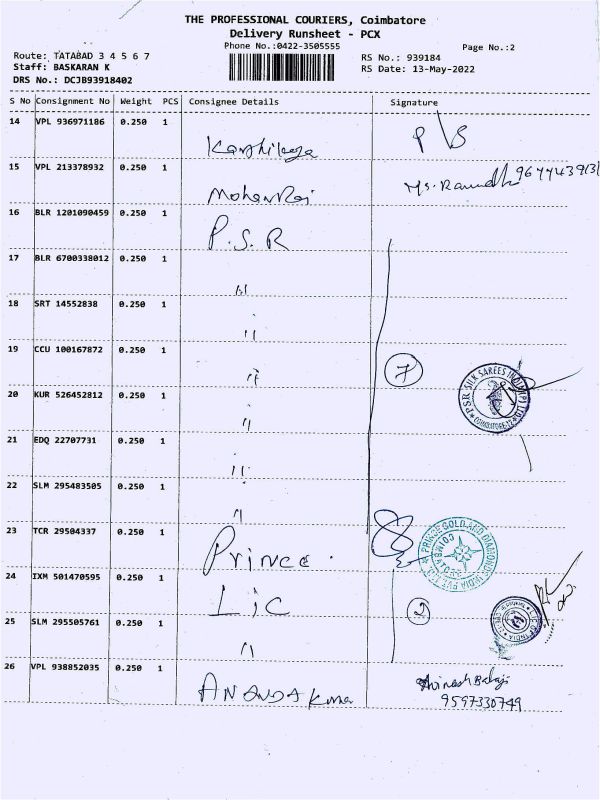 THE PROFESSIONAL COURIERS, Coimbatore
Delivery Runsheet - PCX
Phone No.:0422-3505555
Page No.:2
Route: TATABAD 3 4 5 6 7
RS No.: 939184
Staff: BASKARAN K
RS Date: 13-May-2022
DRS No.: DCJB93918402
S No Consignment No Weight PCS Consignee Details Signature
14 VPL 936971186 0.250 1
15 VPL 213378932 0.250 1 MohanRaj
16 BLR 1201090459 0.250 1 P.S.R
17 BLR 6700338012 0.250 1 "
18 SRT 14552838 0.250 1 "
19 CCU 100167872 0.250 1 " 7
20 KUR 526452812 0.250 1 " PSR SILK SAREES INDIA (P) LTD COIMBATORE-12
21 EDQ 22707731 0.250 1 "
22 SLM 295483505 0.250 1 "
23 TCR 29504337 0.250 1 Prince PRINCE GOLD AND DIAMONDS INDIA PVT. LTD.
24 IXM 501470595 0.250 1 Lic 2
25 SLM 295505761 0.250 1 "
26 VPL 938852035 0.250 1 ANANDA Kumar
9597330749